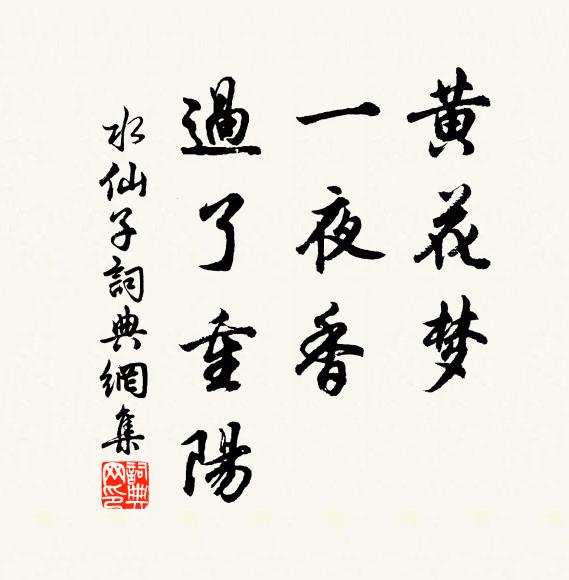 黄花梦
一夜香
過了重陽
水仙子詞典網集
詞典网印